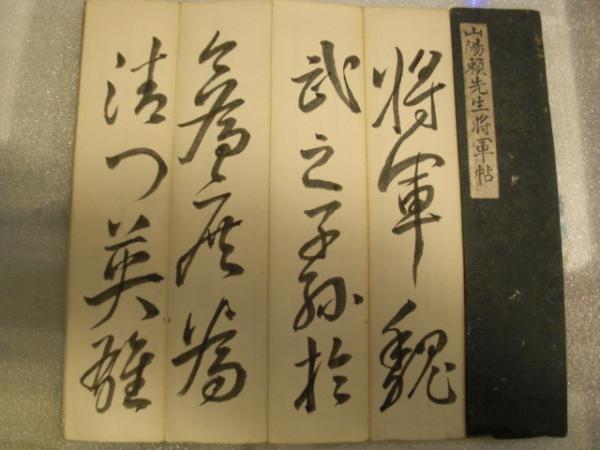 山陽賴先生将軍帖
将軍魏
武之子孫於
今為庶為
清門英雄